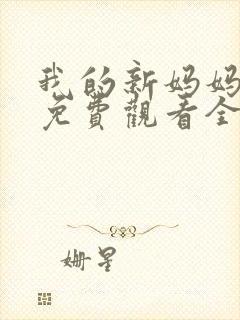 我的新妈妈
免費觀看全
姗星